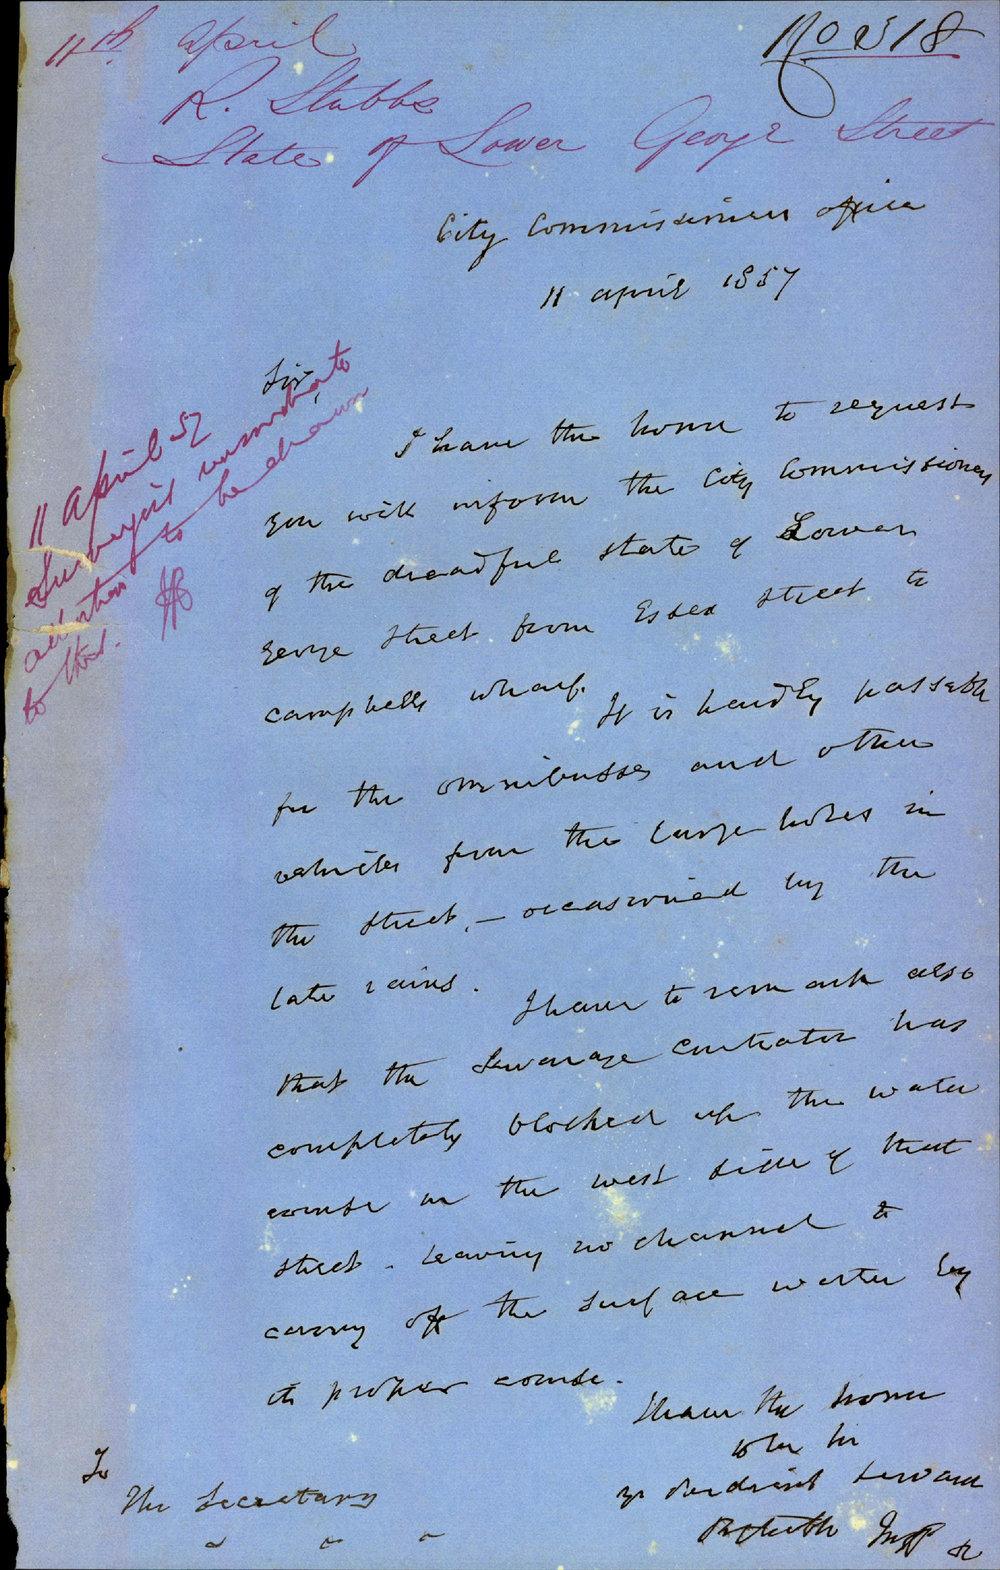 11th April
No 218
R. Stubbs
State of Lower George Street
City Commissioners office
11 April 1857
Sir,
I have the honor to request
you will inform the City Commissioners
of the dreadful state of Lower
George Street from Essex Street to
Campbells Wharf.
It is hardly passable
for the omnibusses and other
vehicles from the large holes in
the Street, – occasioned by the
late rains.
I have to remark also
that the Sewerage Contractor has
completely blocked up the water
course on the west side of that
street - leaving no channel to
carry off the surface water by
its proper course.
I have the honor
to be Sir
yr obedient servant
R Stubbs Inspr
To
The Secretary
11 April 57
Surveyors
attention to be drawn
to this.